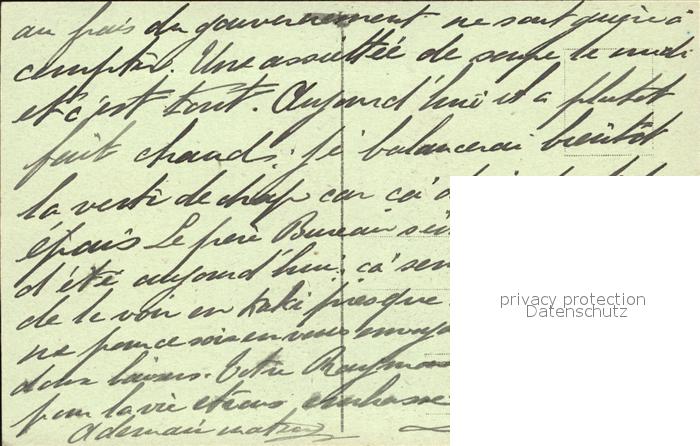 au frais du gouvernement ne sont guère à
compter. Une assiettée de soupe le midi
et c'est tout. Aujourd'hui il a plutot
fait chaud; je balancerai bientôt
la veste de drap car ca
épais Le père Bureau s'é
d'été aujourd'hui; ca sem
de le voir en kaki presque
ne pour ce soir en vous envoya
doux baisers. Votre Raymon
pour la vie et vous embrasse
A demain
privacy protection
Datenschutz